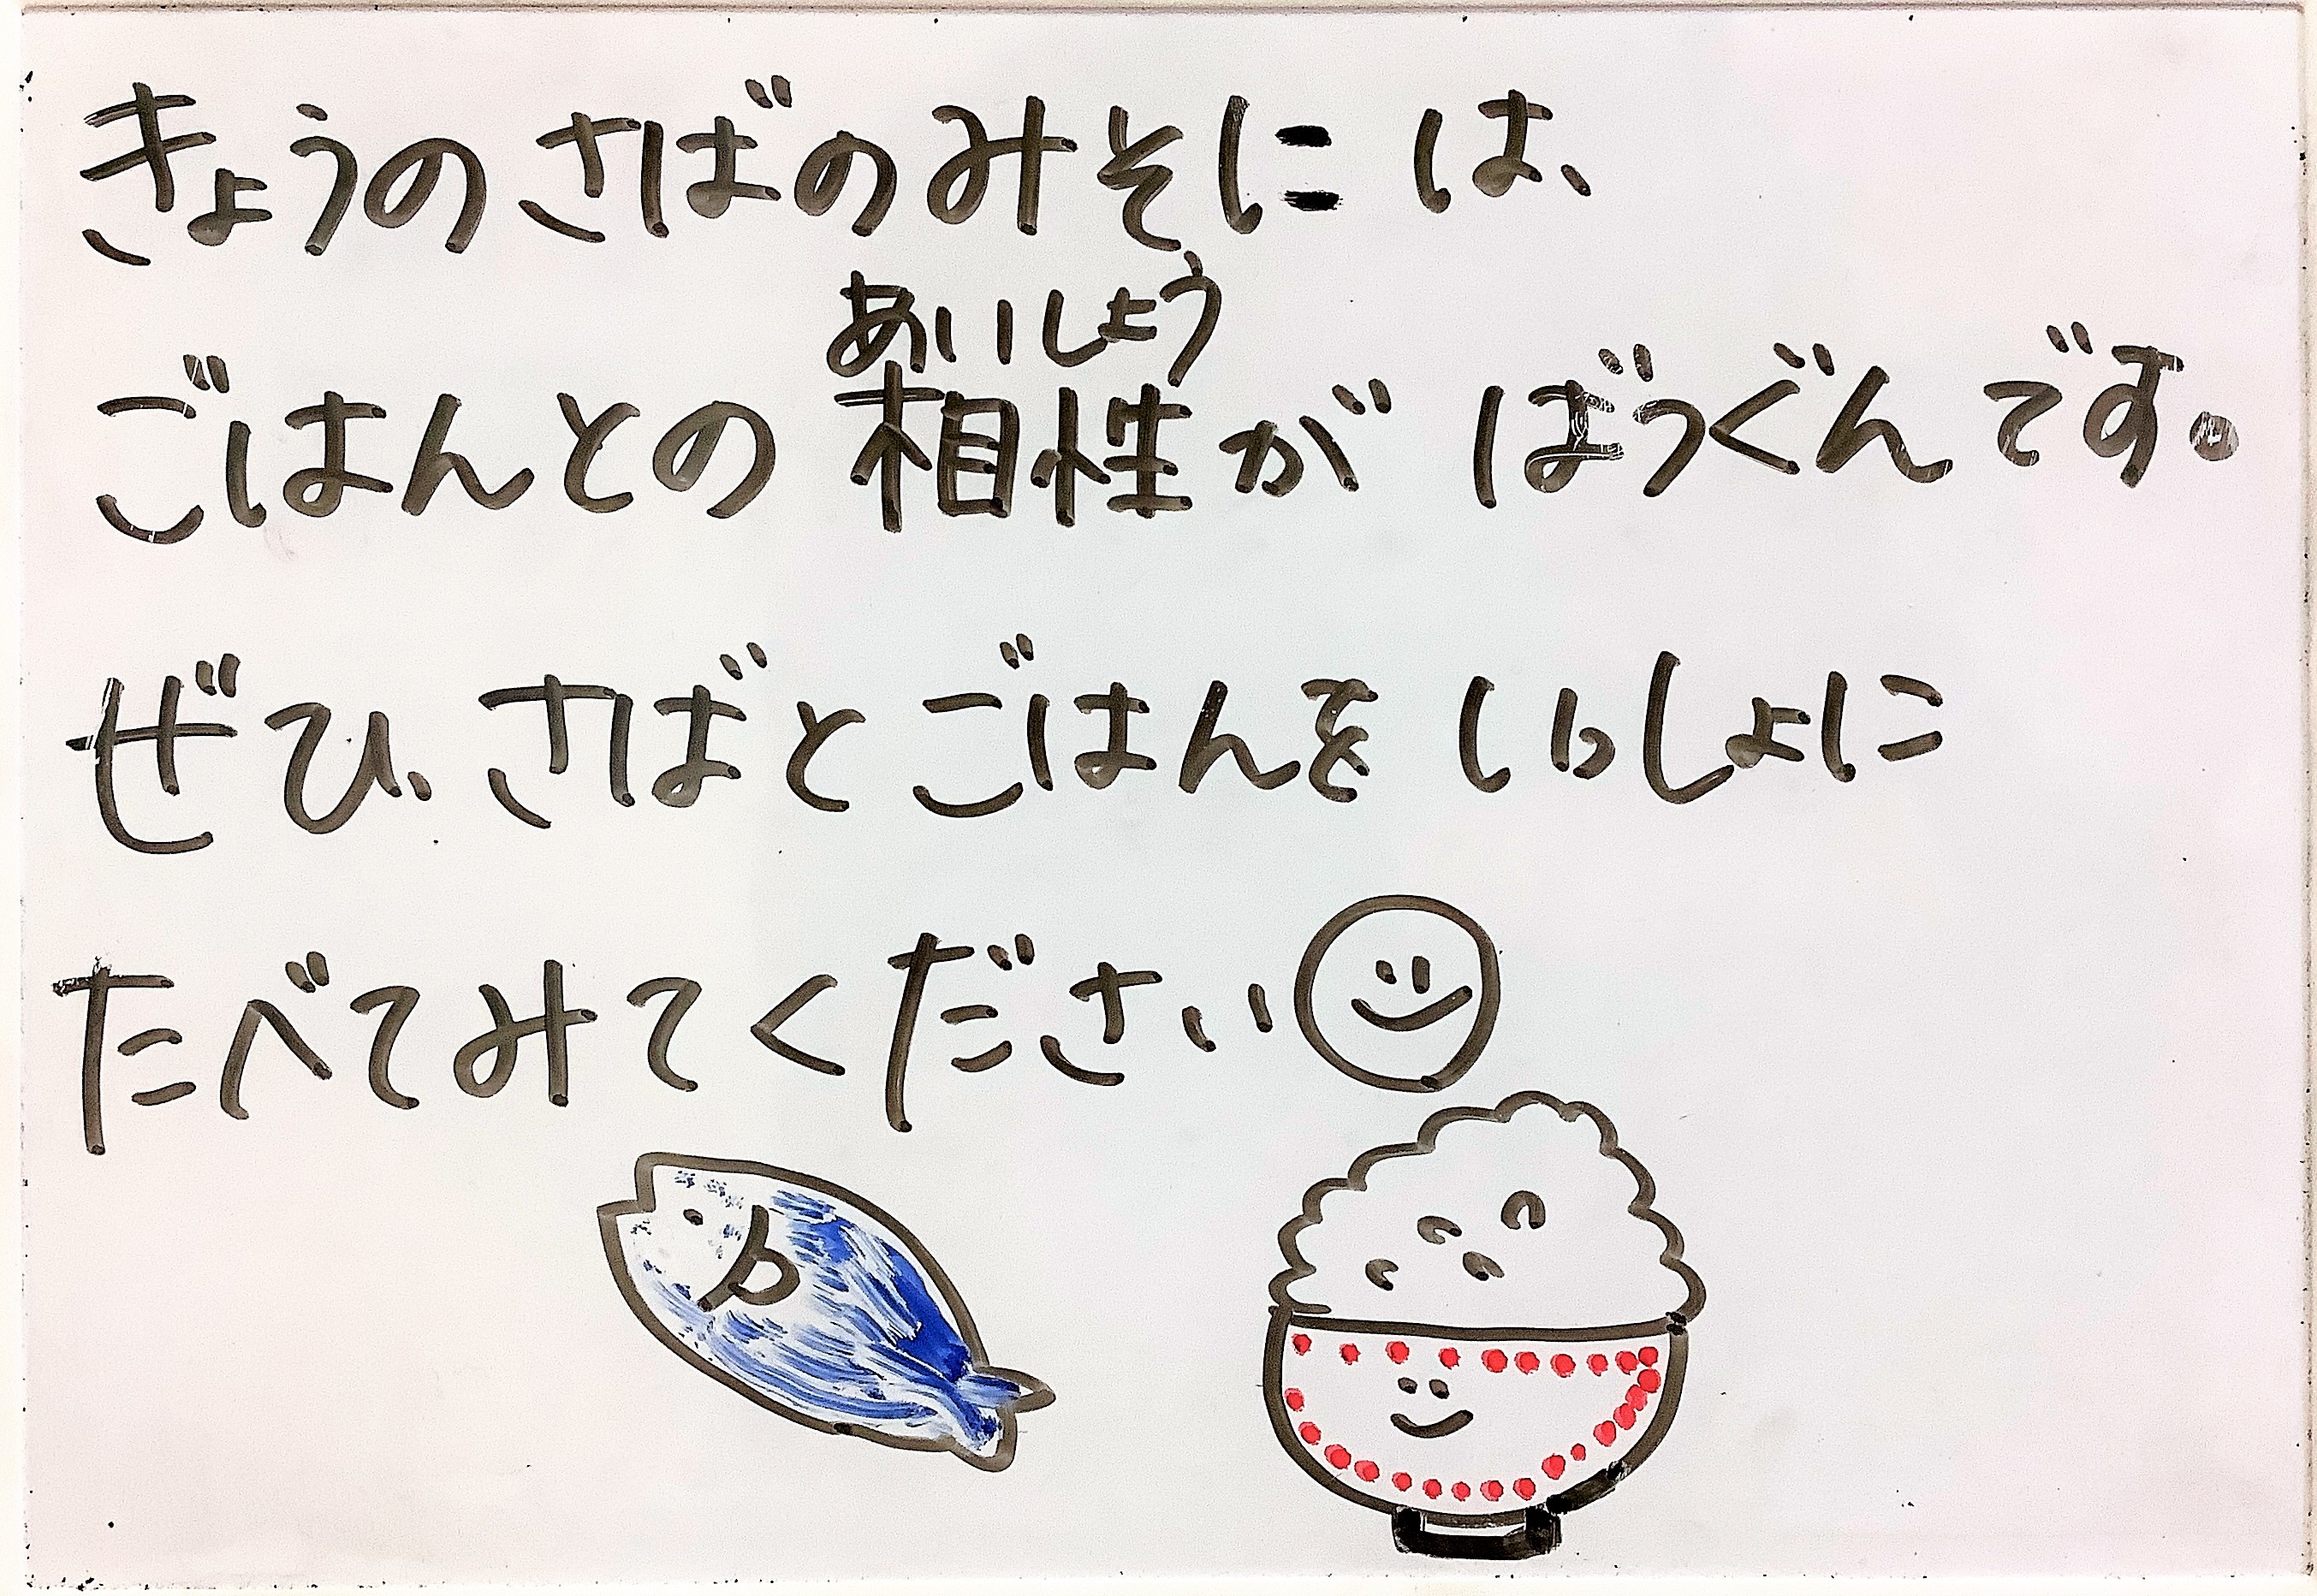 きょうのさばのみそには、
あいしょう
ごはんとの相性がばつぐんです。
ぜひ、さばとごはんをいっしょに
たべてみてください